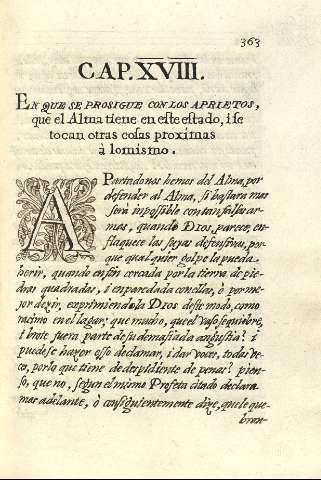 363
CAP. XVIII.
EN QUE SE PROSIGUE CON LOS APRIETOS,
que el Alma tiene en este estado, i se
tocan otras cosas proximas
à lo mismo.
APartidonos hemos del Alma, por
defender al Alma, si bastara mas
serà impossible contan falsas ar-
mas, quando DIOS, parece, en-
flaquece las suyas defensivas, por-
que qualquier golpe la pueda
herir, quando en fin cercada por la tierra de pie-
dras quadradas, i enparedada con ellas, ò por me-
jor dezir, exprimiendola DIOS deste modo, como
racimo en el lagar; que mucho, que el vaso se quiebre,
i brote fuera parte de su demasiada angustia? i
puedese hazer osso declamar, i dar voces, todas ve-
ces, por lo que tiene de despidiente de penas? pien-
so, que no, segun el mismo Profeta citado declara-
mos adelante, ò consiguientemente dize, que le que-
bran-